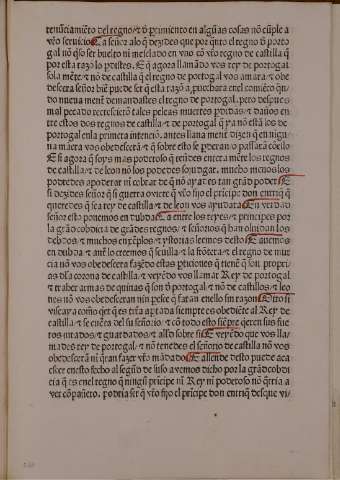 renũciamiẽto del regno/ ⁊ d̃ p̃rimiento en algũas cosas nõ cũple a
vr̃o seruicio Ca señor alo q̃ dezides que por q̃nto el regno d̃ porto
gal nõ q̃so ser buelto ni mezclado en vno cõ vr̃o regno de castilla q̃
por esta razõ lo p̃distes. E q̃ agora llamãdo vos rey de portogal
sola mẽte/ ⁊ nõ de castilla q̃ el regno de portogal vos amara/ ⁊ obe
descera señor biẽ puede ser q̃ esta razõ a p̃uechara enel comiẽço q̃n
do nueua mẽte demandastes el regno de portogal/ pero despues
mal pecado recrescierõ tales peleas muertes p̃didas/ ⁊ daños en
tre estos dos regnos de castilla/ ⁊ de portogal q̃ ya nõ estã los de
portogal enla primera intenciõ. antes llana mẽte dizen q̃ en nigu
na manera vos obedescerã/ ⁊ q̃ sobre esto se p̃deran/ o passarã coello
E si agora q̃ soys mas poderoso q̃ tenedes entera mẽte los regnos
de castilla/ ⁊ de leon nõ los podedes soiudgar. mucho menos los
podredes apoderar ni cobrar de q̃ nõ ayardes tan grãd poder E
si dezides señor q̃ si guerra ouiere q̃ vr̃o fijo el prĩcipe don enrriq̃ q̃
queredes q̃ sea rey de castilla/ ⁊ de leon vos ayudara En verdad
señor esto ponemos en dubda Ca entre los reyes/ ⁊ principes por
la grãd cobdicia de grãdes regnos/ ⁊ señorios q̃ han oluidan los
debdos/ ⁊ muchos enxẽplos/ ⁊ ystorias leemos desto E auemos
en dubda/ ⁊ aun lo creemos q̃ seuilla/ ⁊ la frõtera/ ⁊ el regno de mur
cia nõ vos obedescera faziẽdo estas p̃ticiones q̃ tienẽ q̃ son propri
as dla corona de castilla/ ⁊ veyẽdo vos llamar Rey de portogal
⁊ traher armas de quinas q̃ son d̃ portogal/ ⁊ nõ de castilla/ ⁊ leo
nes nõ vos obedesceran nin pẽse q̃ fazan enello sin razon Otro si
viscaya como q̃er q̃ es tr̃ra aptada siempre es obediẽte al Rey de
castilla/ ⁊ se cuẽta del su señorio/ ⁊ cõ todo esto siẽpre q̃eren sus fue
ros iurados/ ⁊ guardados/ ⁊ alld̃ sobre si E veyẽdo que vos lla
mades rey de portogal/ ⁊ nõ tenedes el señorio de castilla nõ vos
obedescerã ni q̃rran fazer vr̃o mãdado E allẽde desto puede aca
escer en esto fecho al segũd de suso auemos dicho por la grãd cobdi
cia q̃ es enel regno q̃ ningũ prĩcipe ni Rey ni poderoso nõ q̃rria a
ver cõpañero. podria ser q̃ vr̃o fijo el prĩcipe don enrriq̃ desque vi